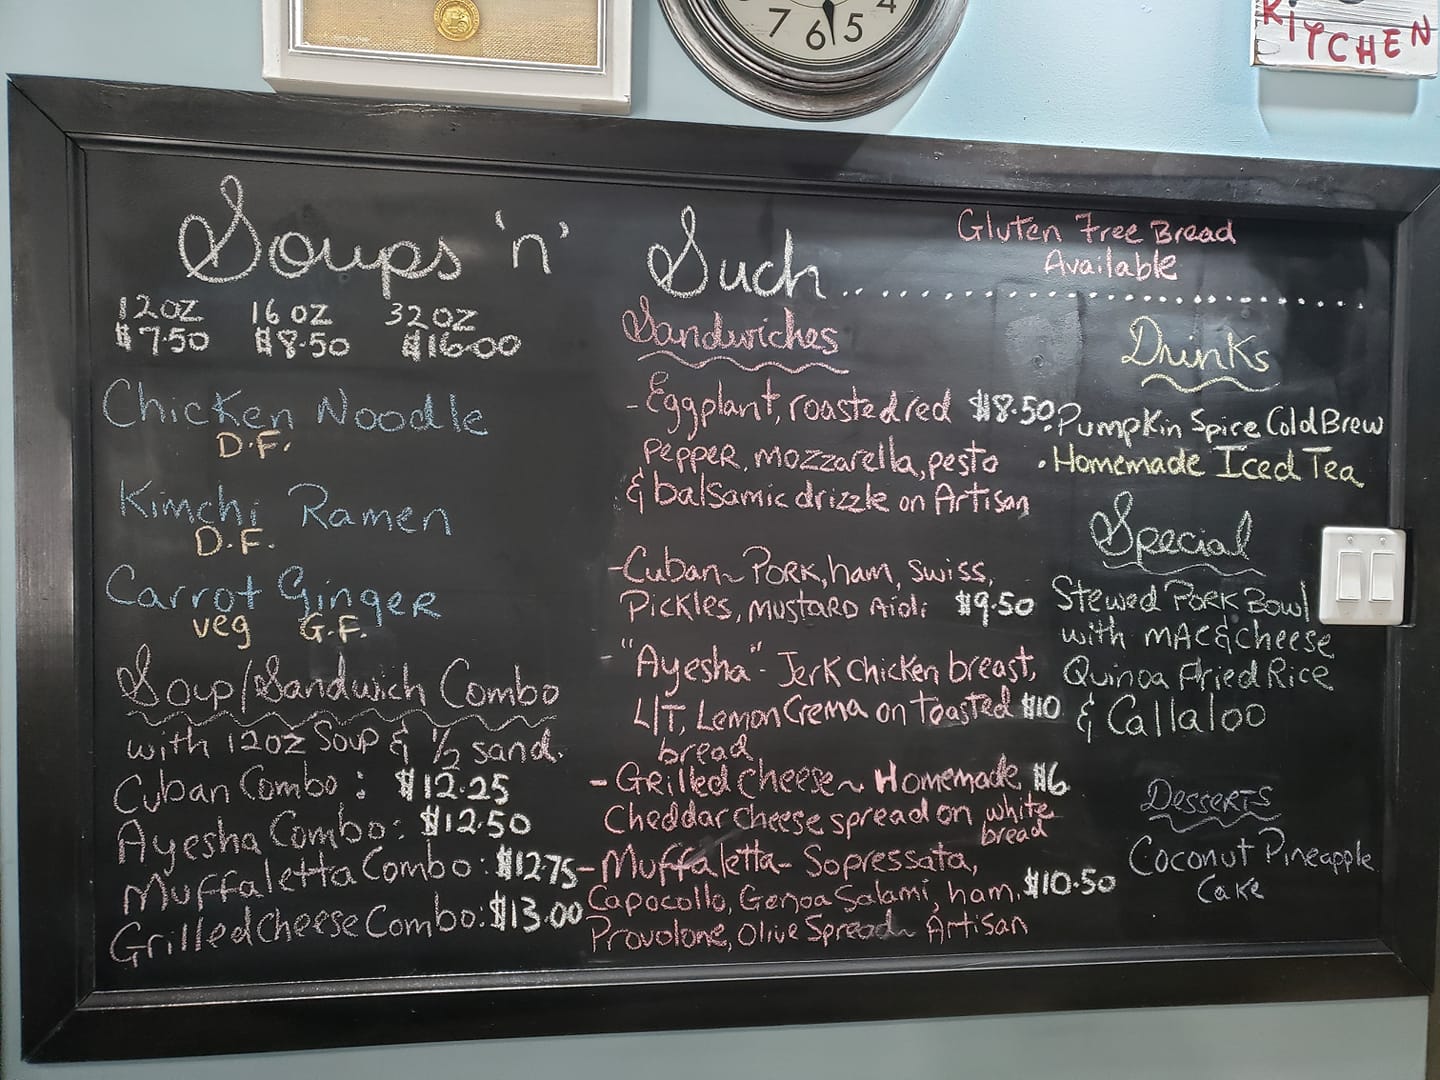 7 6 5 4
KITCHEN
Soups 'n' Such
Gluten Free Bread
Available
12oz 16oz 32oz
$7.50 $8.50 $16.00
Chicken Noodle
D.F.
Kimchi Ramen
D.F.
Carrot Ginger
veg G.F.
Soup/Sandwich Combo
with 12oz Soup & 1/2 sand.
Cuban Combo: $12.25
Ayesha Combo: $12.50
Muffaletta Combo: $12.75
Grilled Cheese Combo: $13.00
Sandwiches
- Eggplant, roasted red $8.50
Pepper, mozzarella, pesto
& balsamic drizzle on Artisan
- Cuban~ Pork, ham, swiss,
Pickles, mustard Aioli $9.50
- "Ayesha" - Jerk chicken breast,
L/T, Lemon Crema on toasted $10
bread
- Grilled cheese~ Homemade $6
Cheddar cheese spread on white
bread
- Muffaletta- Sopressata,
Capocollo, Genoa Salami, ham, $10.50
Provolone, Olive Spread~ Artisan
Drinks
• Pumpkin Spice Cold Brew
• Homemade Iced Tea
Special
Stewed Pork Bowl
with mac & cheese
Quinoa Fried Rice
& Callaloo
Desserts
Coconut Pineapple
Cake